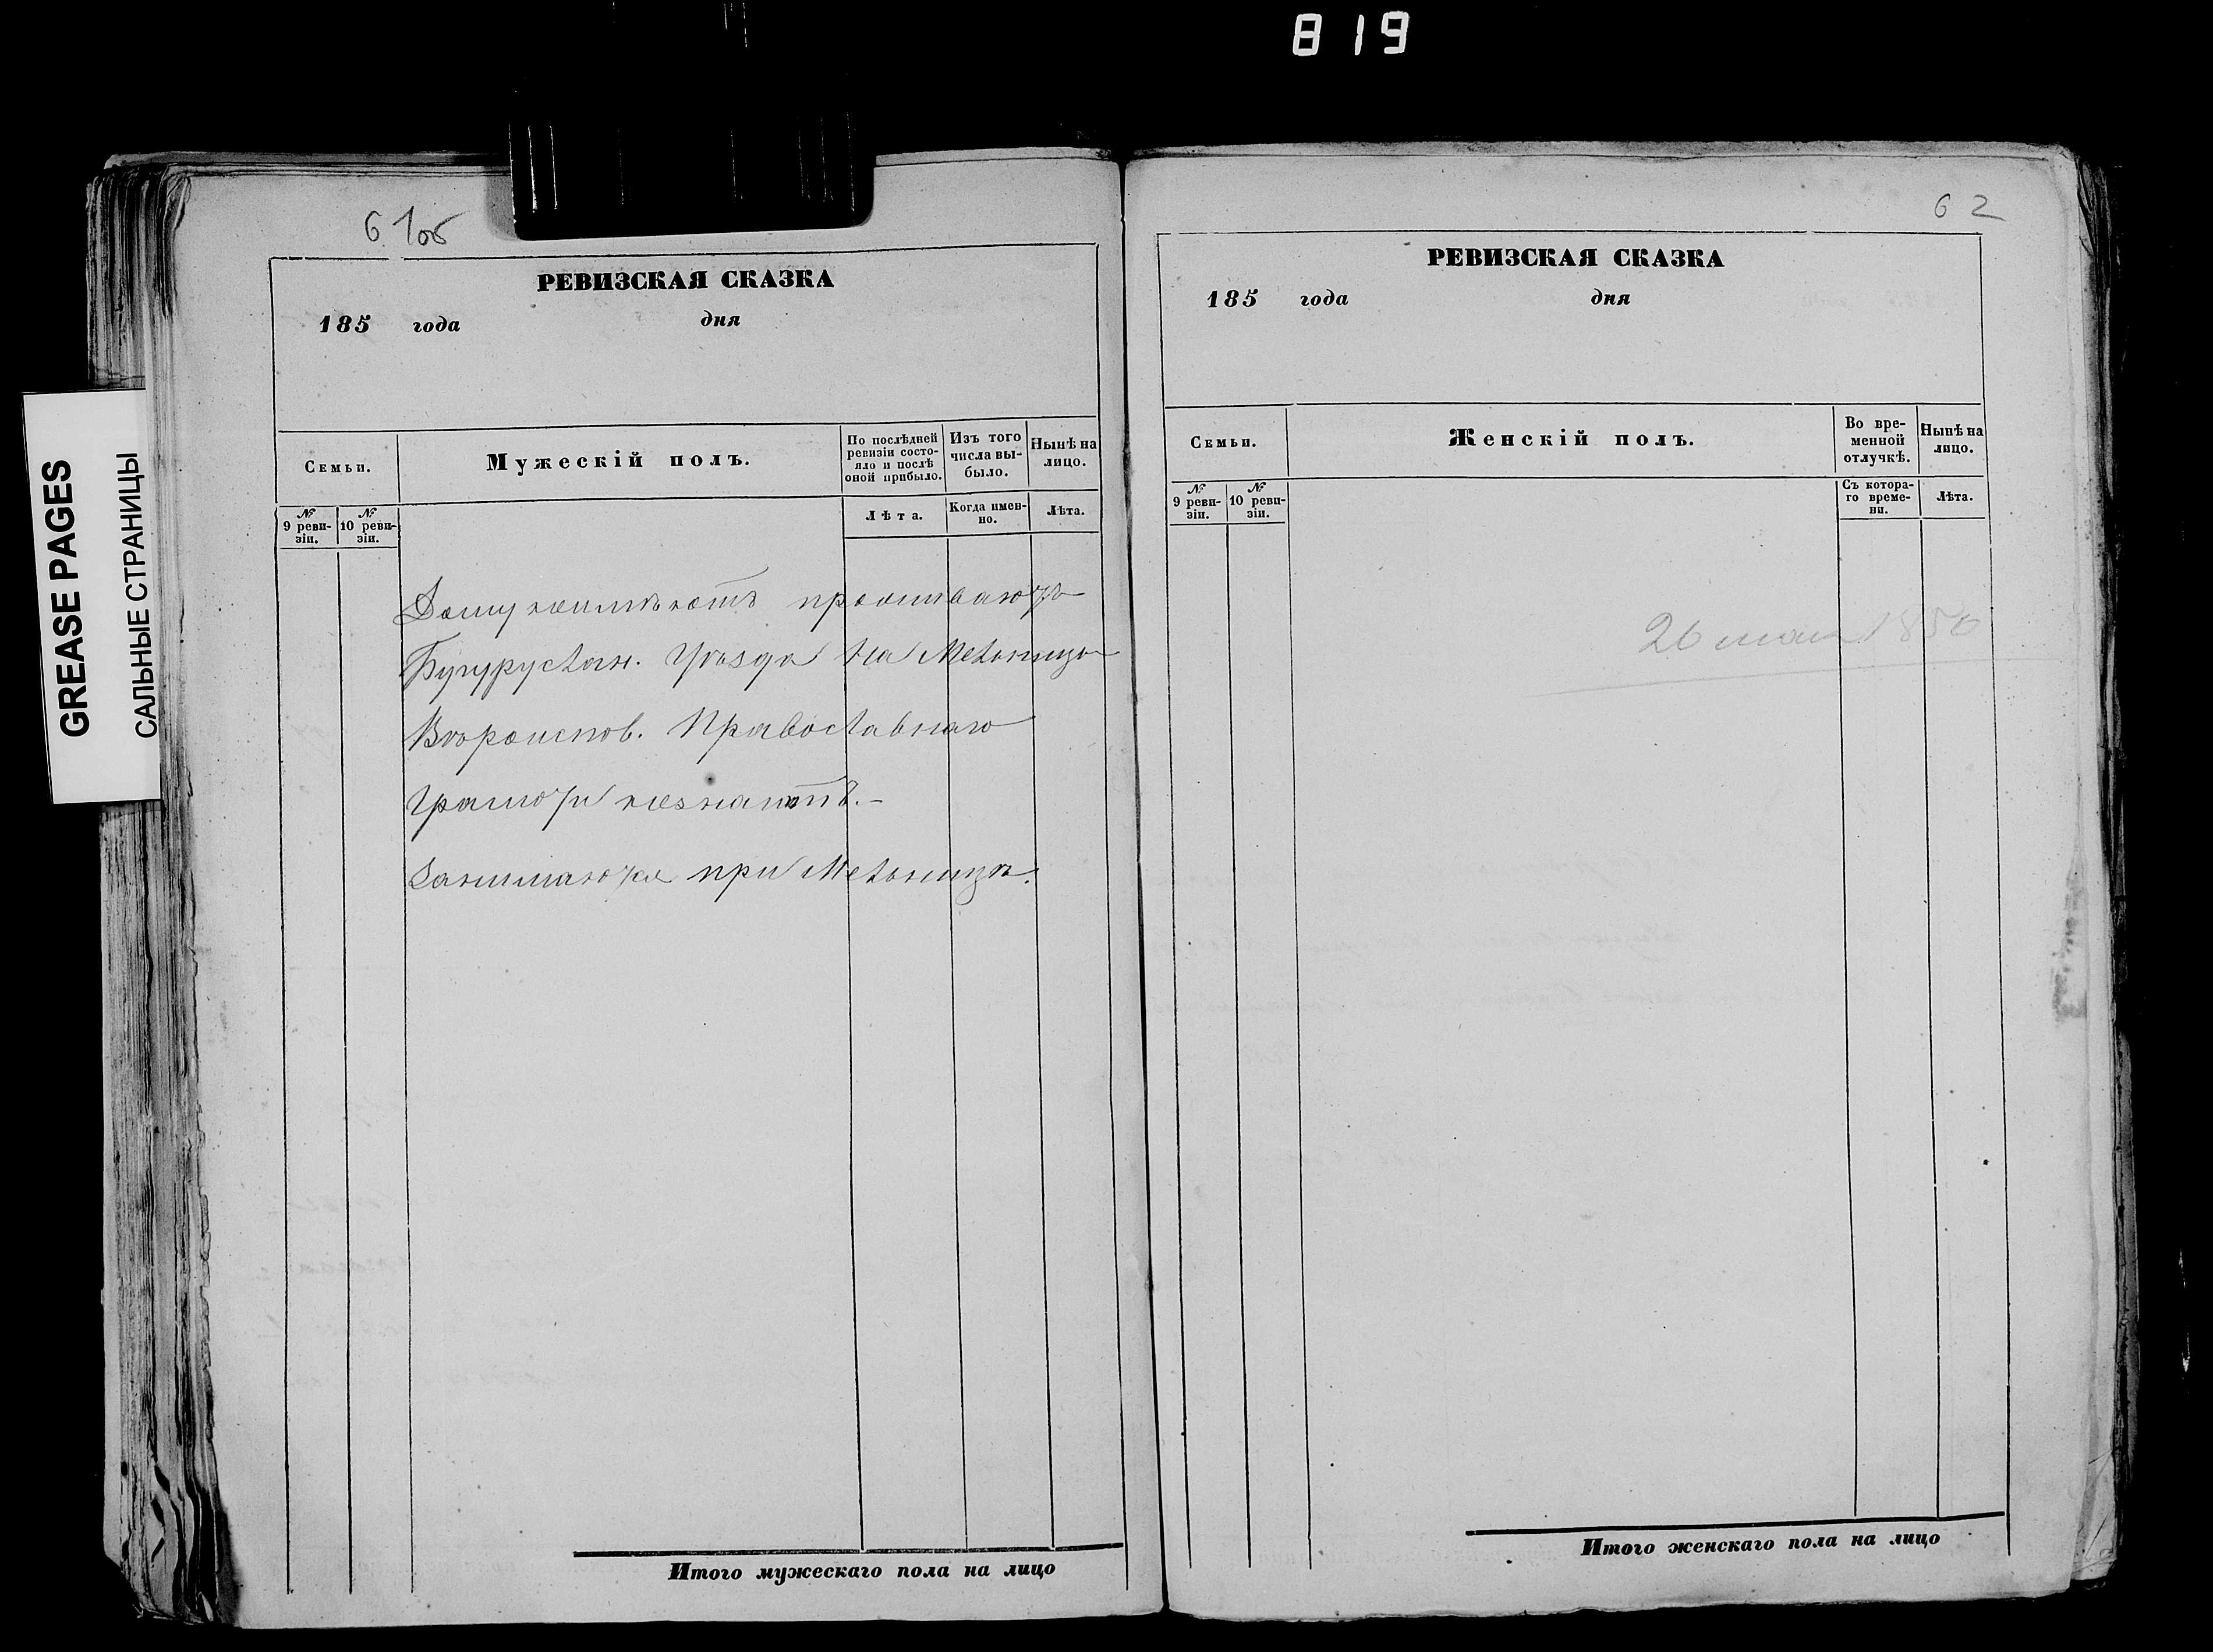 819
GREASE PAGES
САЛЬНЫЕ СТРАНИЦЫ
61об
РЕВИЗСКАЯ СКАЗКА
185 года дня
Семьи.
Мужескій полъ.
По послѣдней ревизіи состо-
яло и послѣ
оной прибыло.
Изъ того
числа вы-
было.
Нынѣ на
лицо.
№
9 реви-
зіи.
№
10 реви-
зіи.
Лѣта.
Когда имен-
но.
Лѣта.
Дому неимѣютъ проживаютъ
Бугуруслан. Уѣзда на Мельницѣ
Вѣроиспов. Православнаго
Грамоти незнаютъ.-
Занимаются при Мельницѣ.
Итого мужескаго пола на лицо
62
РЕВИЗСКАЯ СКАЗКА
185 года дня
Семьи.
Женскій полъ.
Во вре-
менной
отлучкѣ.
Нынѣ на
лицо.
№
9 реви-
зіи.
№
10 реви-
зіи.
Съ котора-
го време-
ни.
Лѣта.
26 мая 1850
Итого женскаго пола на лицо